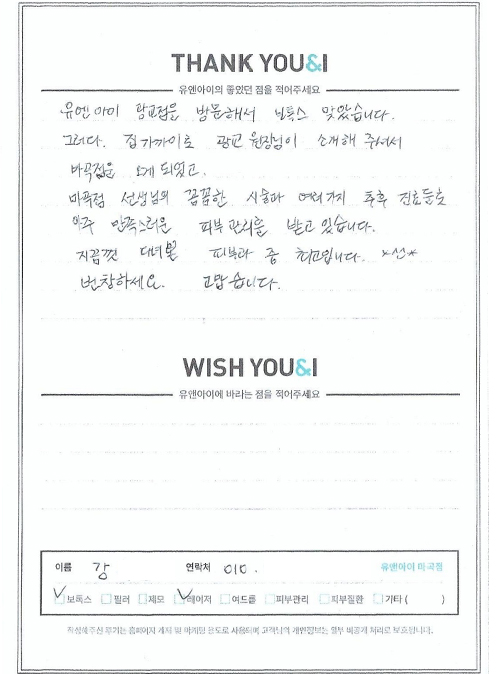 THANK YOU&I
유앤아이의 좋았던 점을 적어주세요
유앤아이 광교점을 방문해서 보톡스 맞았습니다.
그러다. 집 가까이로 광교 원장님이 소개해 주셔서
마곡점을 오게 되었고.
마곡점 선생님의 꼼꼼한 시술과 여러가지 추후 진료들로
아주 만족스러운 피부관리를 받고 있습니다.
지금껏 다녀본 피부과 중 최고입니다.
번창하세요. 고맙습니다.
WISH YOU&I
유앤아이에 바라는 점을 적어주세요
이름 강 연락처 010. 유앤아이 마곡점
보톡스 필러 제모 레이저 여드름 피부관리 피부질환 기타 ( )
작성해주신 후기는 홈페이지 게시 및 마케팅 용도로 사용되며 고객님의 개인정보는 일부 비공개 처리로 보호됩니다.